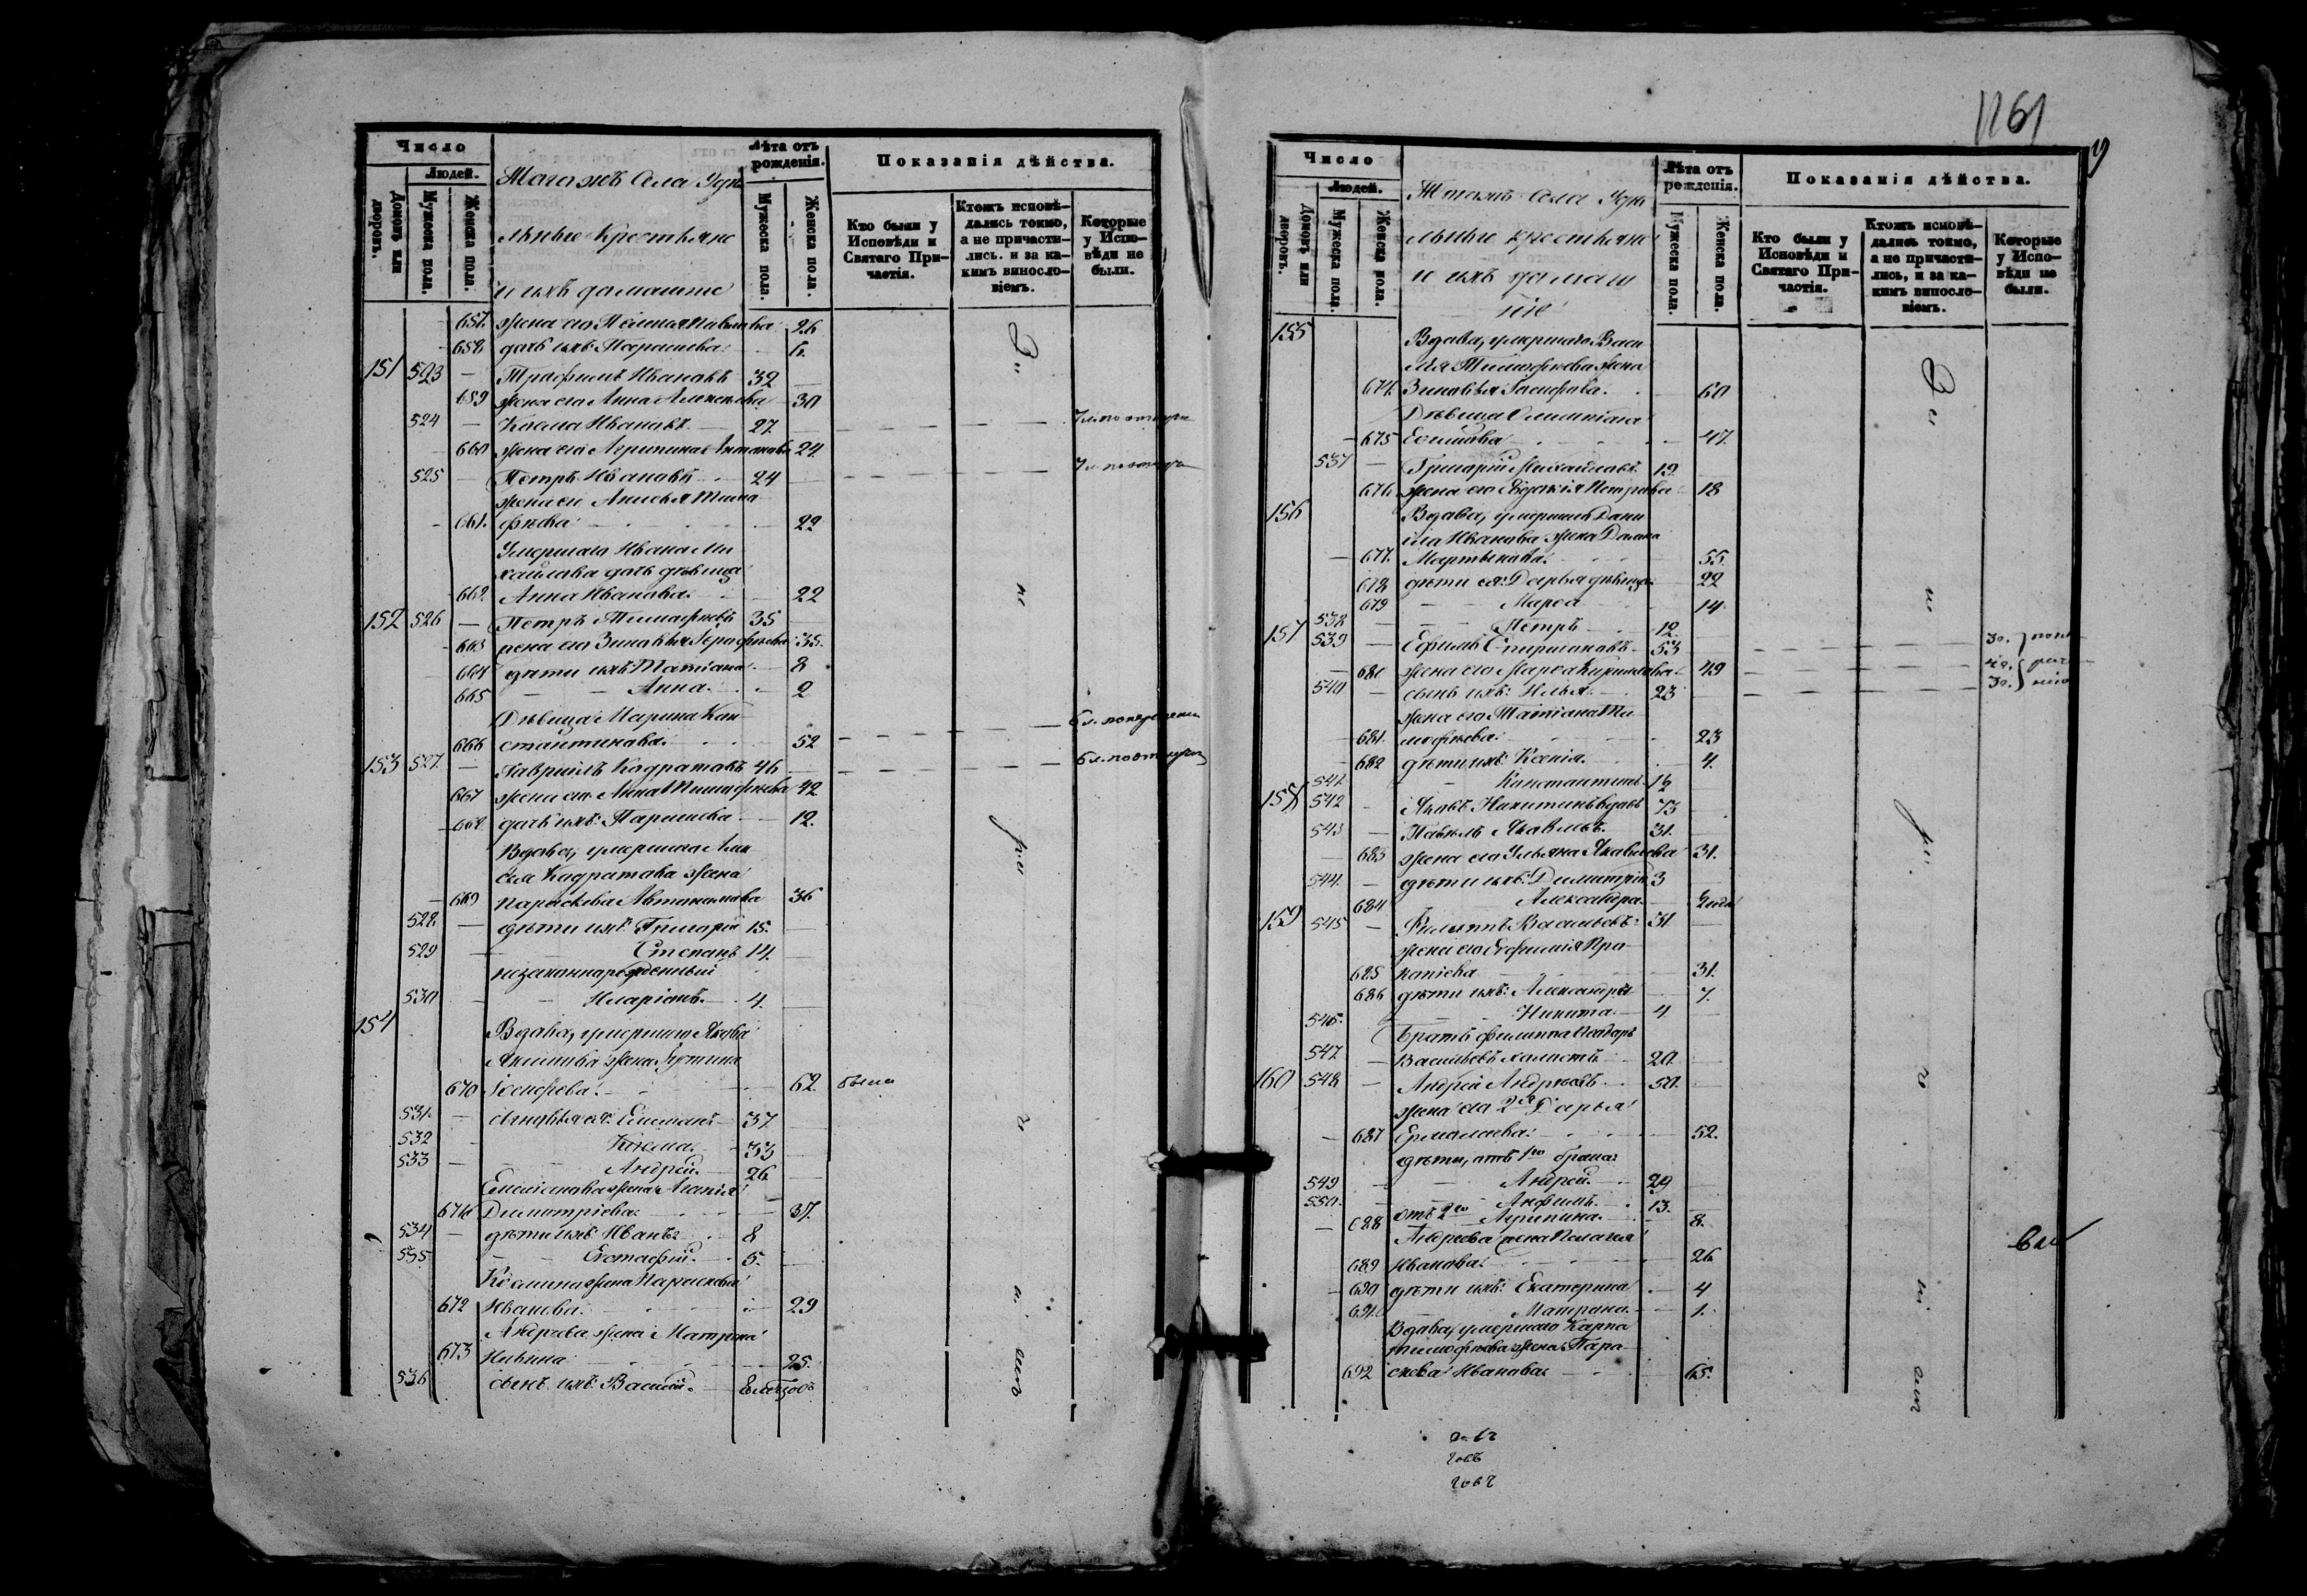 Число
Людей.
Домовъ или дворовъ.
Мужеска пола.
Женска пола.
Тагожъ Села Удѣ
льные Крестьяне
и ихъ домашніе
Лѣта отъ рожденія.
Мужеска пола.
Женска пола.
Показанія дѣйства.
Кто были у Исповѣди и Святаго Причастія.
Ктожъ исповѣдались токмо, а не причастились, и за какимъ винословіемъ.
Которые у Исповѣди не были.
657. жена его Пелагея Павлова 26
658 дочь ихъ: Парасковья 6.
151 523 — Трафимъ Ивановъ 32
659 жена его Анна Алексѣева 30
524 — Козма Ивановъ 27.
660 жена его Агрипина Антонова 24
525 — Петръ Ивановъ 24
жена его Анисья Тимо
661. фѣева 22
Умершаго Ивана Ми
хайлова дочь дѣвица
662. Анна Иванова. 22
152 526 — Петръ Тимофѣевъ 35
663 жена его Зиновья Ерофѣева 35.
664 дѣти ихъ: Татіана 8
665 Анна. 2
Дѣвица Марина Кон
666 стантинова 52
153 527. — Гавріилъ Кодратовъ 46
667 жена его Анна Тимофѣева 42
668 дочь ихъ: Парасковья 12.
Вдова, умершаго Алек
сѣя Кадратова жена
669 Парасковья Автономова 36
528. — дѣти ихъ: Григорій 15.
529 Степанъ 14.
незаконнорожденный
530 — Иларіонъ. 4.
154 Вдова, умершаго Якова
жена Іустина
670 Іосифова 62. была
531. — сыновья ея: Емельянъ 37
532 Козма. 33
533 — Андрей. 26
Емельянова жена Агапія
671 Димитріева 37.
534 — дѣти ихъ: Иванъ 8
535 — Евстафій. 5.
Козмина жена Парасковья
672 Иванова. 29
Андреева жена Матрена
673 Никина 25.
536 сынъ ихъ: Василій.
Число
Людей.
Домовъ или дворовъ.
Мужеска пола.
Женска пола.
Тагожъ Села Удѣ
льные крестьяне
и ихъ домаш
ніе
Лѣта отъ рожденія.
Мужеска пола.
Женска пола.
Показанія дѣйства.
Кто были у Исповѣди и Святаго Причастія.
Ктожъ исповѣдались токмо, а не причастились, и за какимъ винословіемъ.
Которые у Исповѣди не были.
1161
155 Вдова, умершаго Васи
лія Тимофѣева жена
674. Зиновья Іосифова. 60
Дѣвица Олимпіада
675 Есипова 47.
537 — Григорій Михайловъ 19.
676 жена его Евдокія Петрова 18
156 Вдова, умершаго Дани
ила Иванова жена Домна
677. Мартынова. 55.
678 дѣти ея: Дарья дѣвица 22
679 Марѳа 14
538 Петръ 12.
157 539 — Ефимъ Спиридоновъ 53
680 жена его Марѳа Кирилова 49
540 — сынъ ихъ: Илья. 23
жена его Татіана Ти
681. мофѣева 23
682 дѣти ихъ: Ксенія. 4.
541 Константинъ
158 542 — Яковъ Никитинъ вдовъ 73
543 — Павелъ Яковлевъ. 31.
683 жена его Ульяна Яковлева 31.
544. — дѣти ихъ: Димитрій 3
684 Александра.
159 545 — Филиппъ Васильевъ 31
жена его Евфимія Про
685 копіева 31.
686 дѣти ихъ: Александра 7.
546. Никита. 4
Братъ Филиппа
547 — Васильевъ холостъ. 20
160 548 — Андрей Андреевъ 50.
жена его 2я Дарья
687 Ермолаева 52.
дѣти, отъ 1го брака:
549 — Андрей. 29
550. — Анфимъ. 13.
688 отъ 2го Агрипина. 8.
Андреева жена Пелагея
689 Иванова. 26
690 дѣти ихъ: Екатерина 4
691. Матрона. 1.
Вдова, умершаго Карпа
Тимофѣева жена Пара
692 скева Иванова 65.